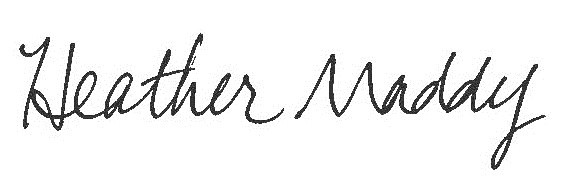 Heather Maddy